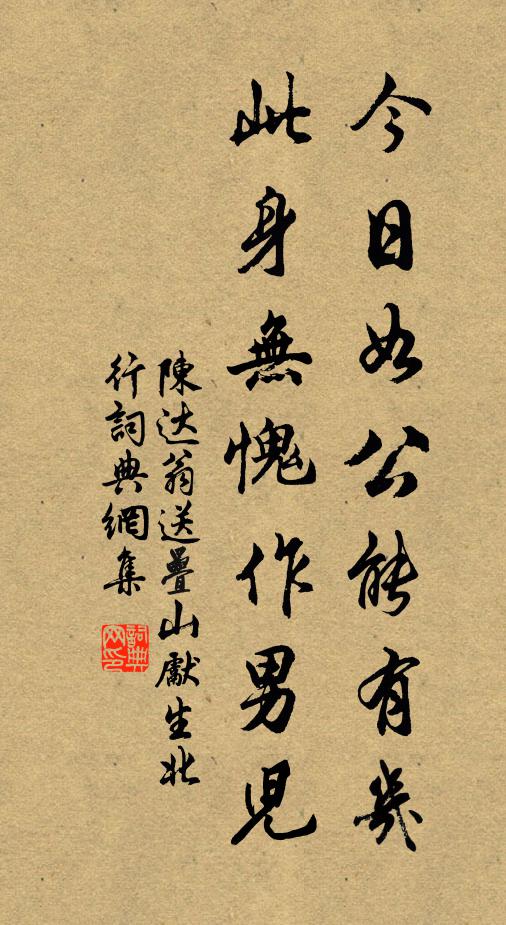 今日如公能有幾
此身無愧作男兒
陳达翁送疊山獻生北
行詞典網集
詞典网印